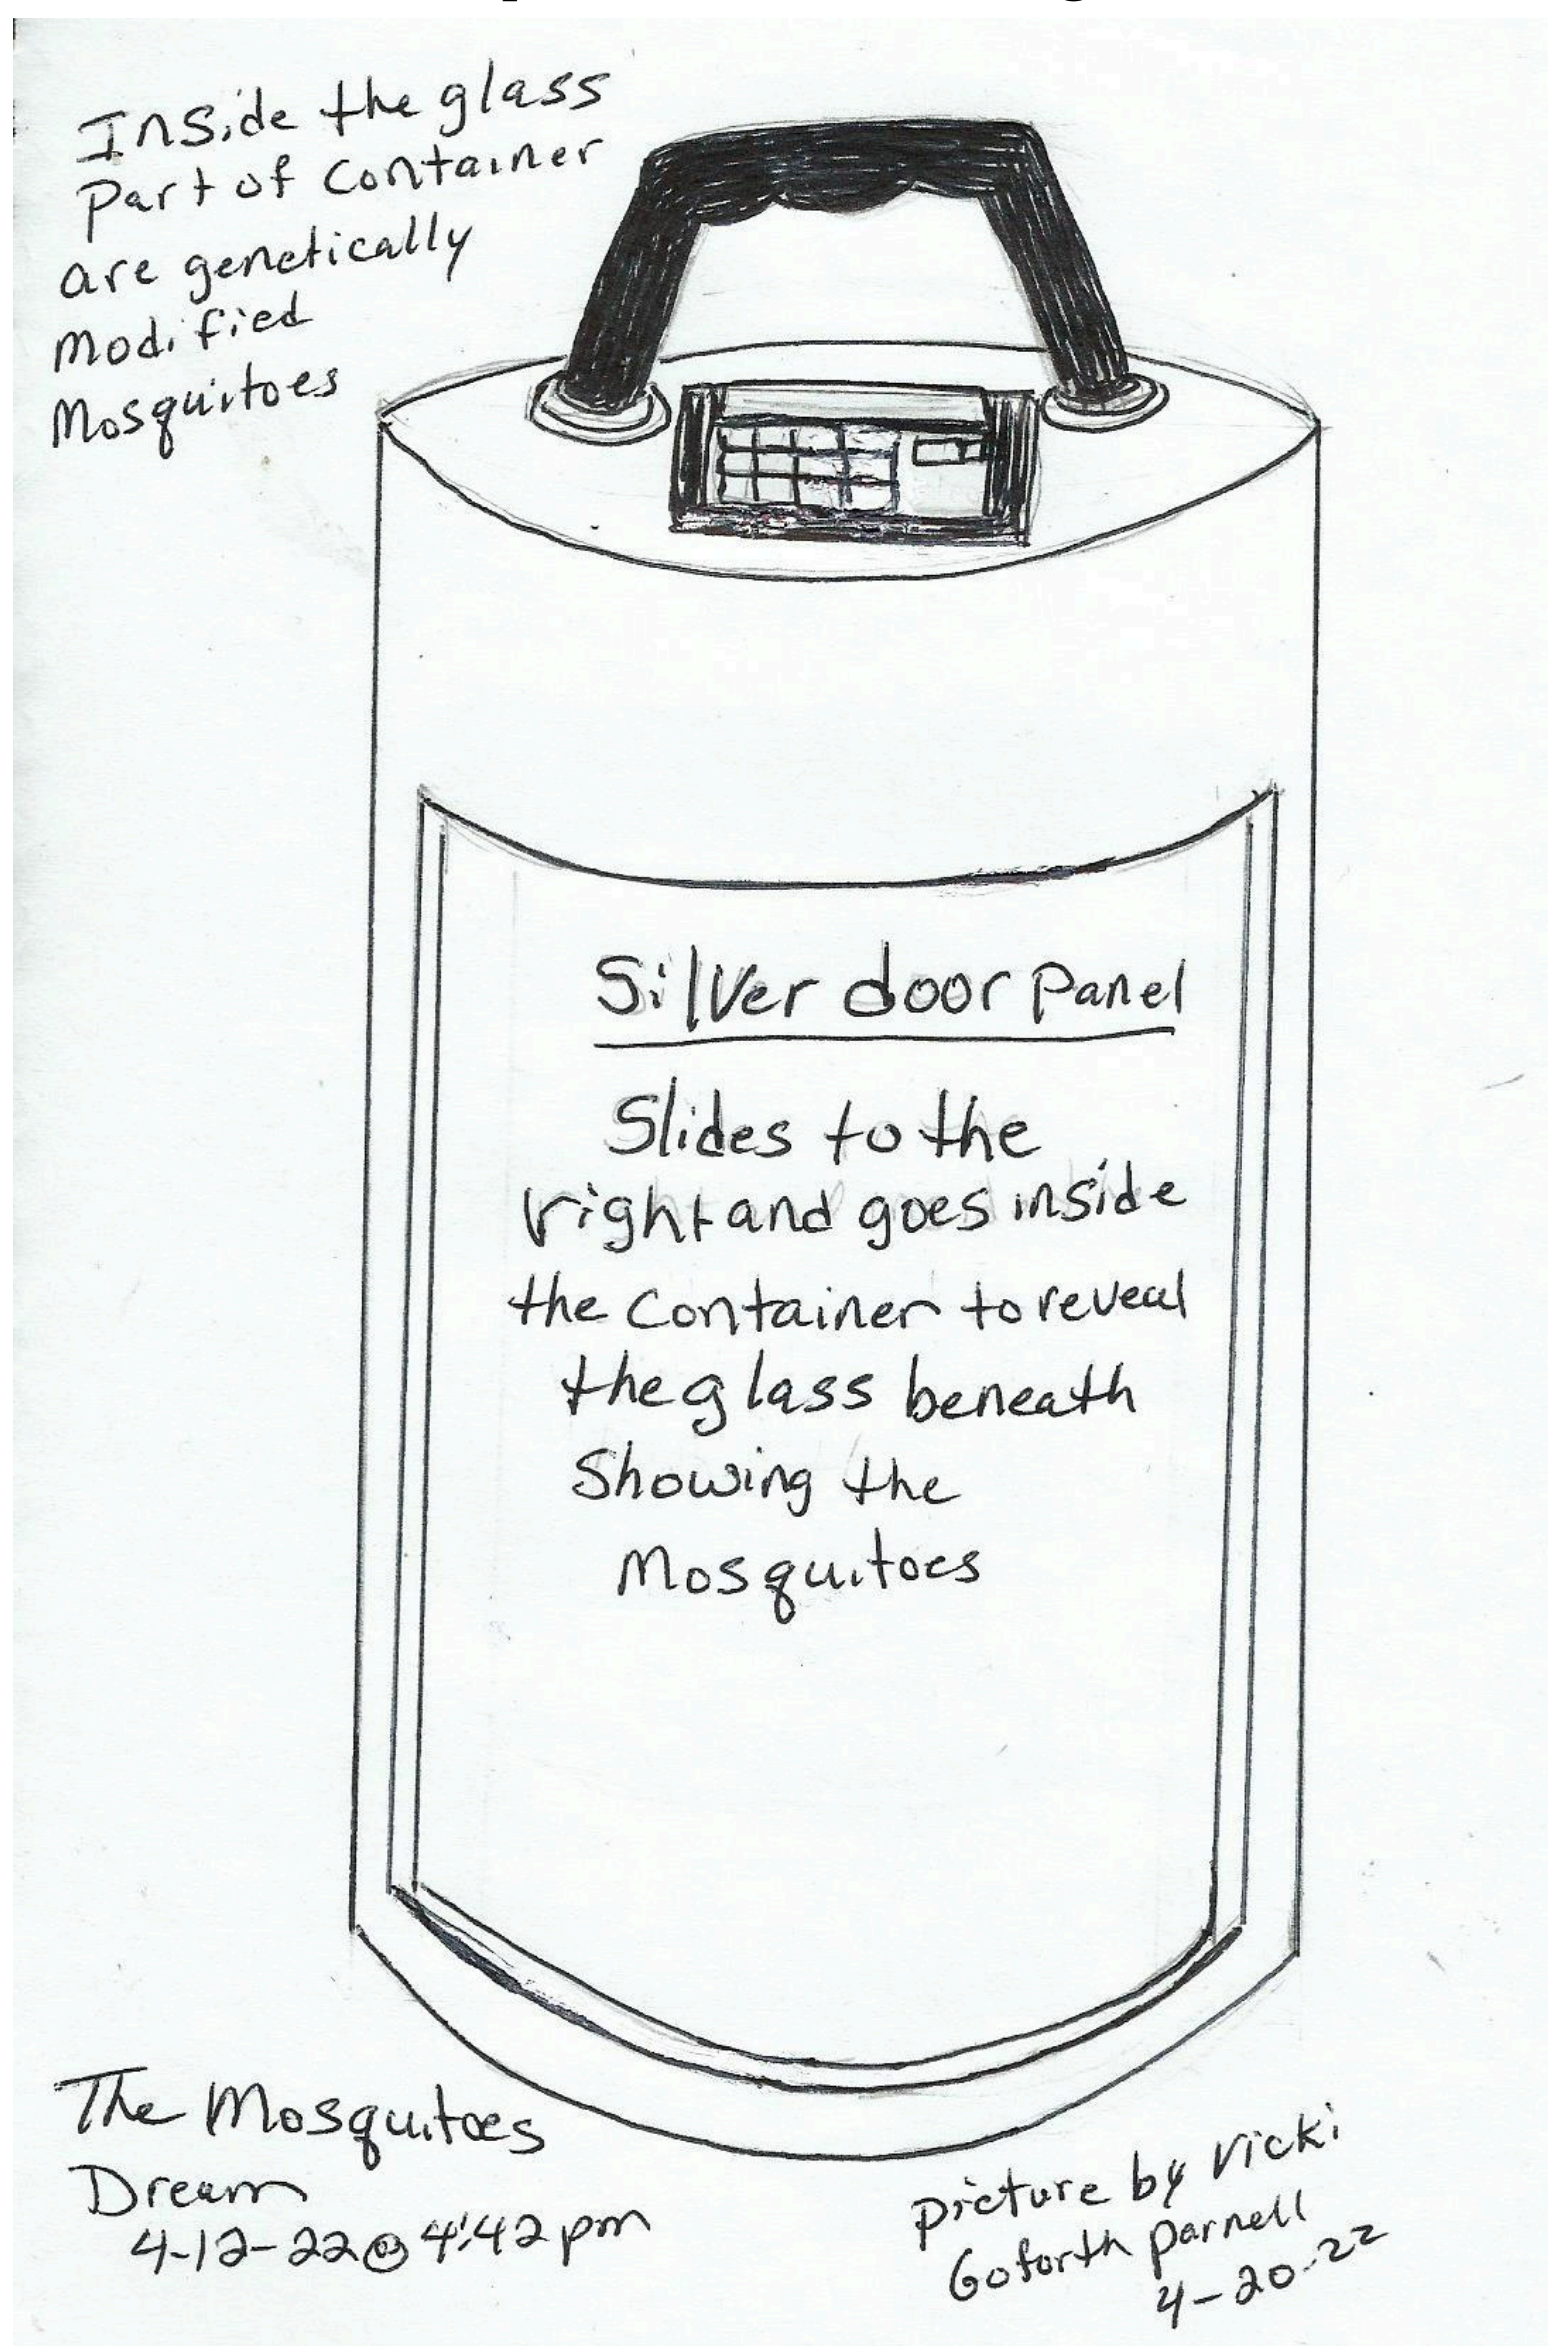 Inside the glass
Part of Container
are genetically
Modified
Mosquitoes
Silver door Panel
Slides to the
right and goes inside
the Container to reveal
the glass beneath
Showing the
Mosquitoes
The Mosquitoes
Dream
4-12-22@ 4:42 pm
picture by Vicki
Goforth Parnell
4-20-22